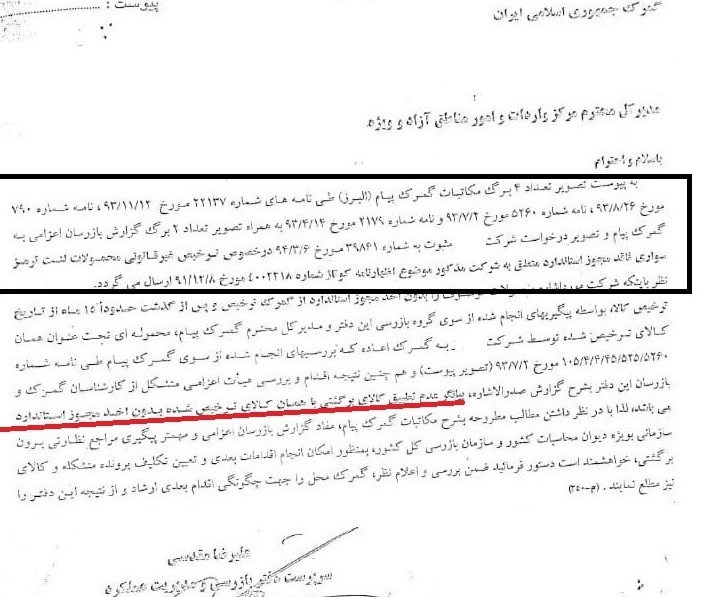 پیوست :
گمرک جمهوری اسلامی ایران
مدیر کل محترم مرکز واردات و امور مناطق آزاد و ویژه
باسلام و احترام
به پیوست تصویر تعداد ۴ برگ مکاتبات گمرک پیام (البرز) طی نامه های شماره ۲۲۱۳۷ مورخ ۹۳/۱۱/۱۲ ، نامه شماره ۷۹۰
مورخ ۹۳/۸/۲۶ ، نامه شماره ۵۲۶۰ مورخ ۹۳/۷/۲ و نامه شماره ۲۱۷۹ مورخ ۹۳/۴/۱۴ به همراه تصویر تعداد ۲ برگ گزارش بازرسان اعزامی به
گمرک پیام و تصویر درخواست شرکت مثبوت به شماره ۳۹۸۶۱ مورخ ۹۴/۳/۶ درخصوص ترخیص غیرقانونی محمولات لنت ترمز
سواری فاقد مجوز استاندارد متعلق به شرکت مذکور موضوع اظهارنامه کوتاژ شماره ۴۰۰۲۲۱۸ مورخ ۹۱/۱۲/۸ ارسال می گردد.
نظر باینکه شرکت را بدون اخذ مجوز استاندارد از گمرک ترخیص و پس از گذشت حدوداً ۱۵ ماه از تاریخ
ترخیص کالا، بواسطه پیگیریهای انجام شده از سوی گروه بازرسی این دفتر و مدیر کل محترم گمرک پیام، محموله ای تحت عنوان همان
کالای ترخیص شده توسط شرکت به گمرک اعاده که بررسیهای انجام شده از سوی گمرک پیام طی نامه شماره
۱۰۵/۴/۴/۴۵/۵۲۵/۵۲۶۰ مورخ ۹۳/۷/۲ (تصویر پیوست) و هم چنین نتیجه اقدام و بررسی هیأت اعزامی متشکل از کارشناسان گمرک و
بازرسان این دفتر بشرح گزارش صدرالاشاره، بیانگر عدم تطبیق کالای برگشتی با همان کالای ترخیص شده بدون اخذ مجوز استاندارد
می باشد، لذا با در نظر داشتن مطالب مطروحه بشرح مکاتبات گمرک پیام، مفاد گزارش بازرسان اعزامی و مهمتر پیگیری مراجع نظارتی برون
سازمانی بویژه دیوان محاسبات کشور و سازمان بازرسی کل کشور، بمنظور امکان انجام اقدامات بعدی و تعیین تکلیف پرونده متشکله و کالای
برگشتی، خواهشمند است دستور فرمائید ضمن بررسی و اعلام نظر، گمرک محل را جهت چگونگی اقدام بعدی ارشاد و از نتیجه این دفتر را
نیز مطلع نمایند. (م-۳۵۰)
علیرضا مقدسی
سرپرست دفتر بازرسی و مدیریت عملکرد